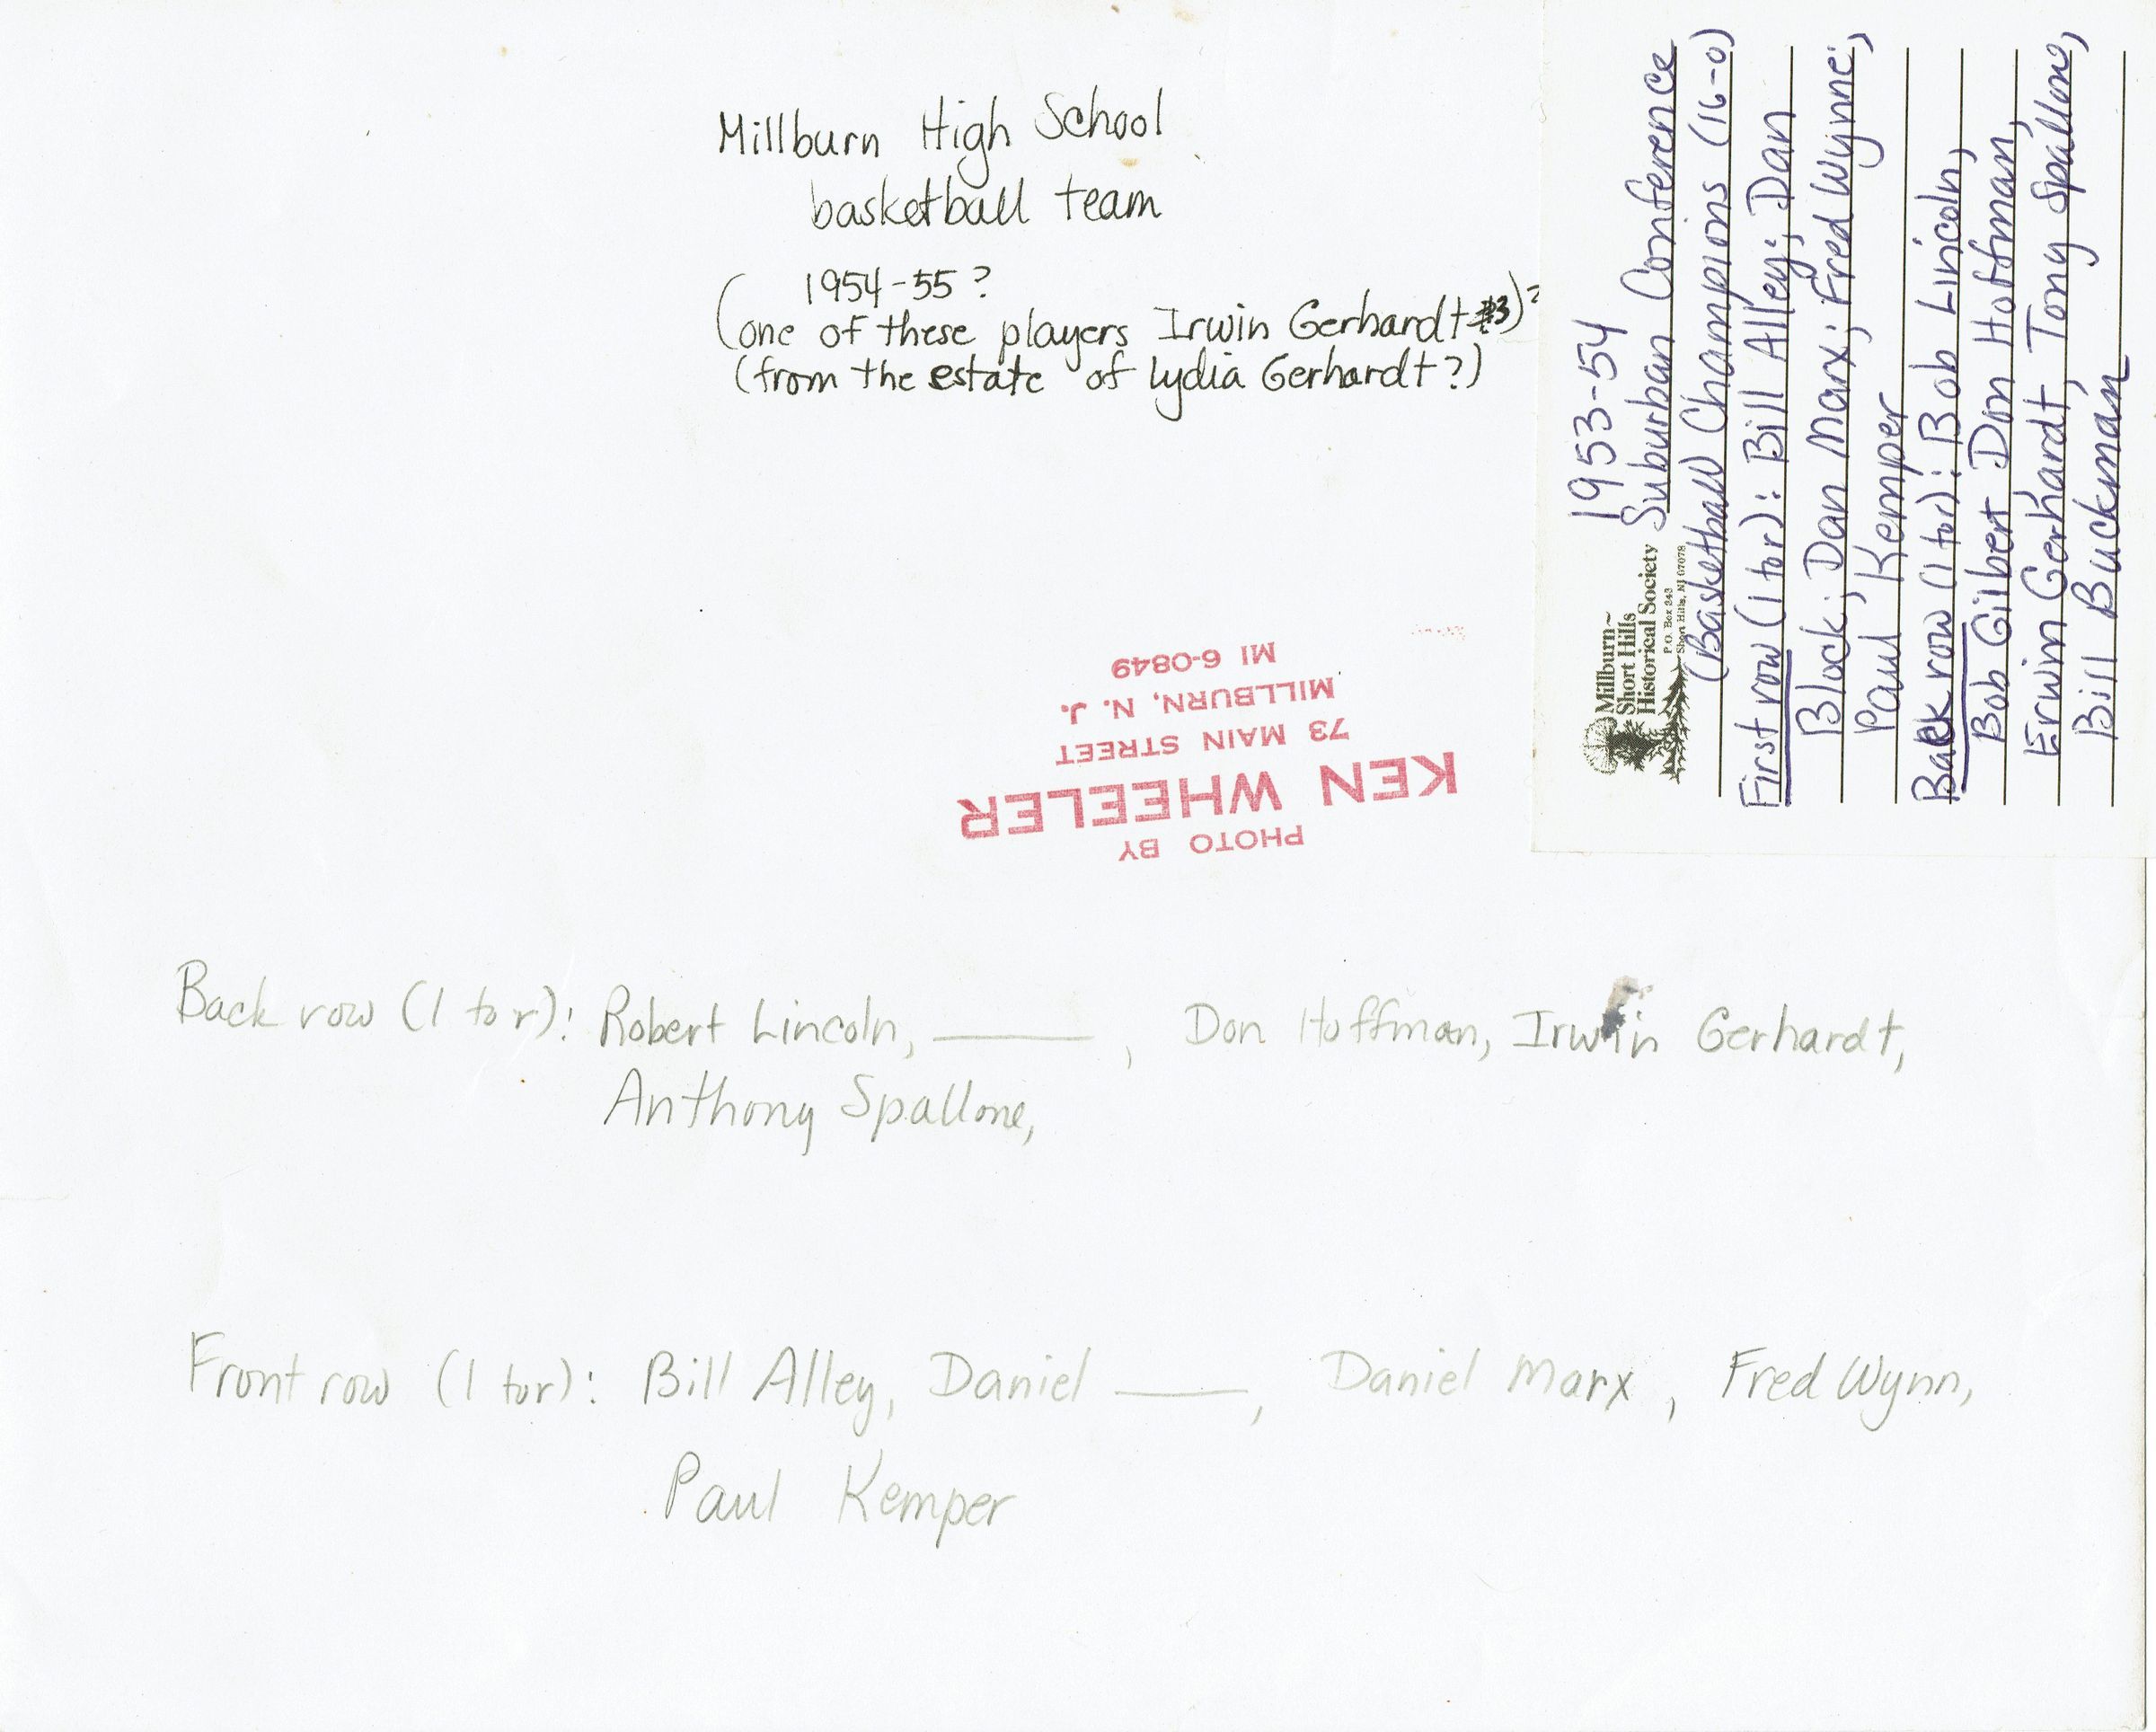 Millburn High School
basketball team
1954-55?
(one of these players Irwin Gerhardt #3)?
(from the estate of Lydia Gerhardt?)
PHOTO BY
KEN WHEELER
73 MAIN STREET
MILLBURN, N. J.
MI 6-0849
Back row (l to r): Robert Lincoln, ______, Don Hoffman, Irwin Gerhardt,
Anthony Spallone,
Front row (l to r): Bill Alley, Daniel ____, Daniel Marx, Fred Wynn,
Paul Kemper
Millburn~
Short Hills
Historical Society
P.O. Box 243
Short Hills, NJ 07078
1953-54
Suburban Conference
(Basketball Champions (16-0)
First row (l to r): Bill Alley; Dan
Block; Dan Marx; Fred Wynne;
Paul Kemper
Back row (l to r): Bob Lincoln,
Bob Gilbert Don Hoffman,
Erwin Gerhardt, Tony Spallone,
Bill Buckman